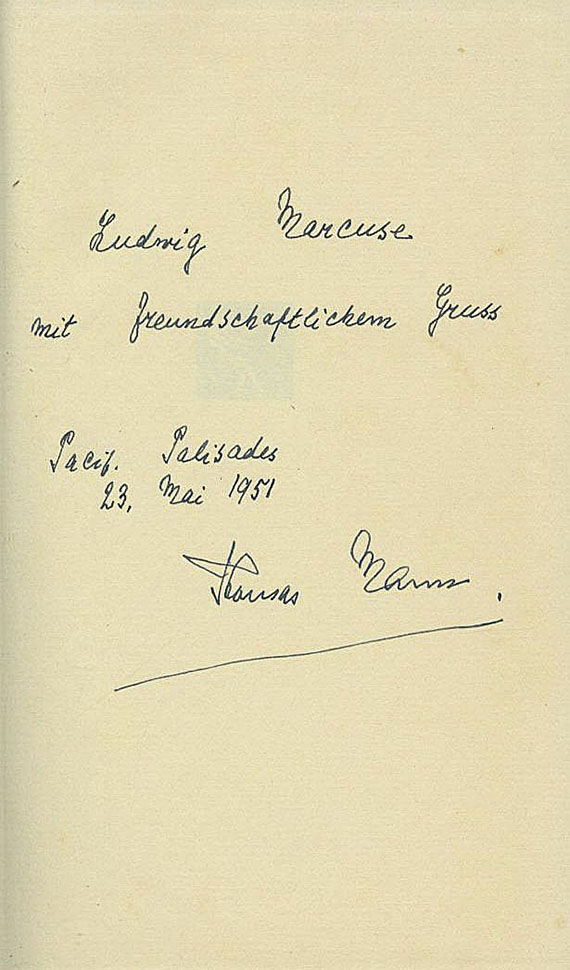 Ludwig Marcuse
mit freundschaftlichem Gruss
Pacif. Palisades
23. Mai 1951
Thomas Mann.